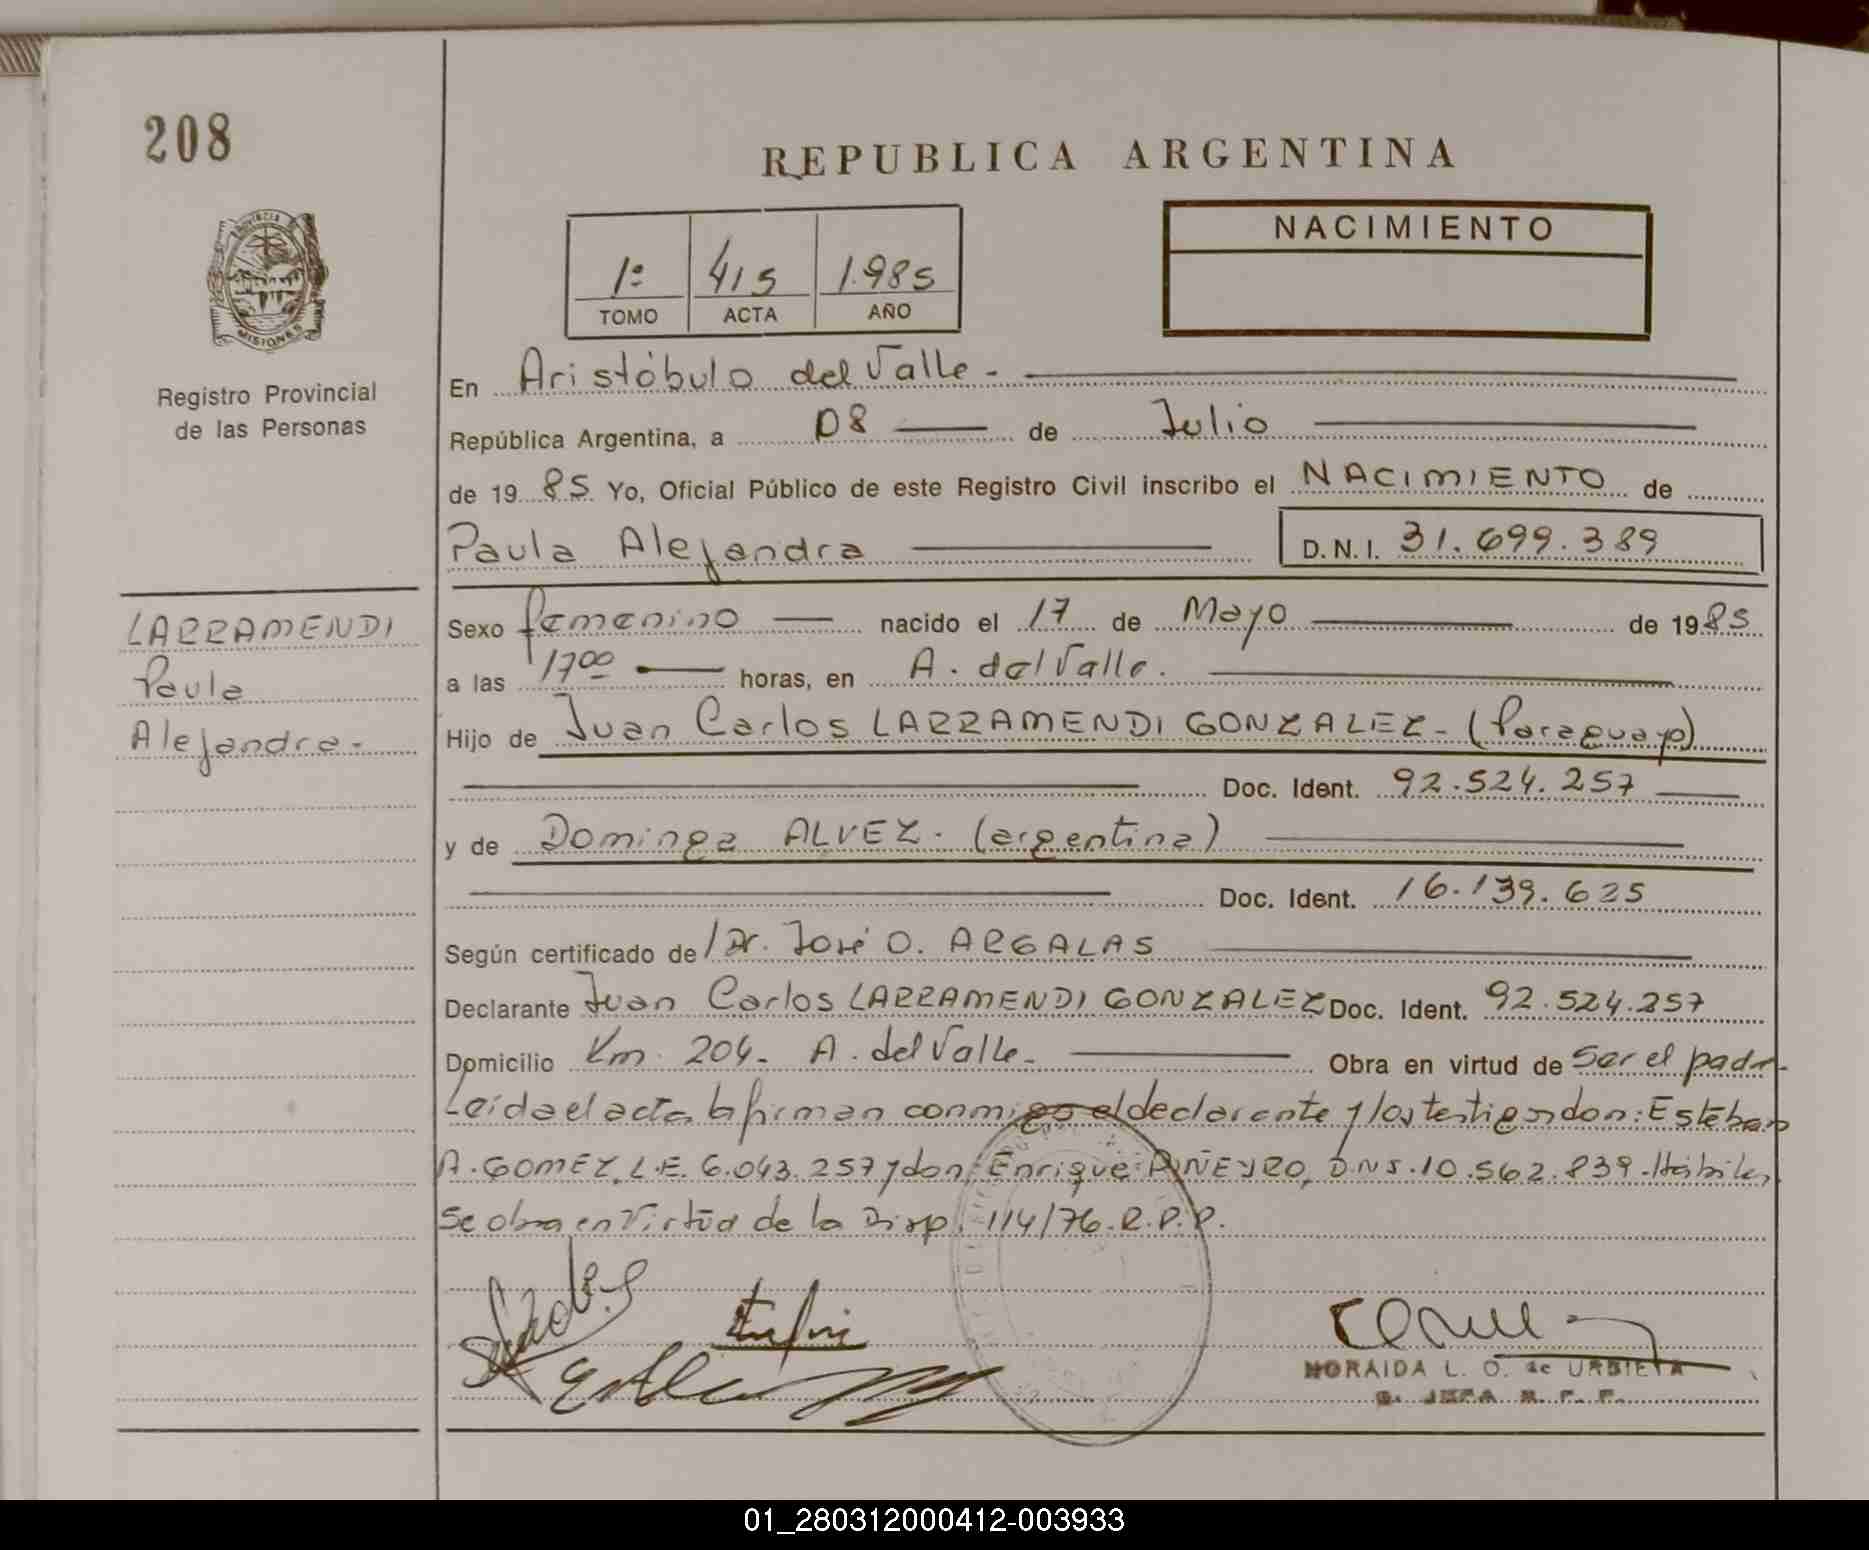 208
REPUBLICA ARGENTINA
PROVINCIA
MISIONES
Registro Provincial
de las Personas
1º 415 1.985
TOMO ACTA AÑO
NACIMIENTO
En Aristóbulo del Valle.-
República Argentina, a 08 de Julio
de 1985 Yo, Oficial Público de este Registro Civil inscribo el NACIMIENTO de
Paula Alejandra D.N.I. 31.699.389
LARRAMENDI
Paula
Alejandra.-
Sexo femenino nacido el 17 de Mayo de 1985
a las 17ºº horas, en A. del Valle.
Hijo de Juan Carlos LARRAMENDI GONZALEZ.- (Paraguayo)
Doc. Ident. 92.524.257
y de Dominga ALVEZ. (argentina)
Doc. Ident. 16.139.625
Según certificado de Dr. José O. ARGALAS
Declarante Juan Carlos LARRAMENDI GONZALEZ Doc. Ident. 92.524.257
Domicilio Km. 204.- A. del Valle.- Obra en virtud de ser el padre
Leída el acta la firman conmigo el declarante y los testigos don: Esteban
A. GOMEZ, L.E. 6.043.257 y don Enrique PIÑEYRO, D.N.I. 10.562.839.- Hábiles
Se obra en Virtud de la Disp. 114/76.R.P.P.
NORAIDA L. O. de URBIETA
JEFA R. P. P.
01_280312000412-003933